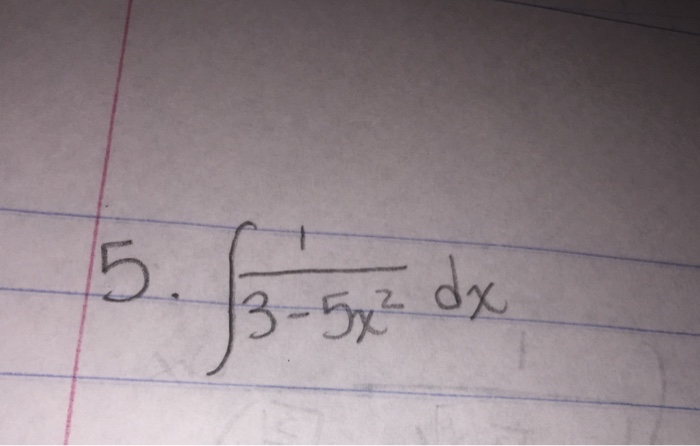 5. ∫ 1/(3-5x²) dx